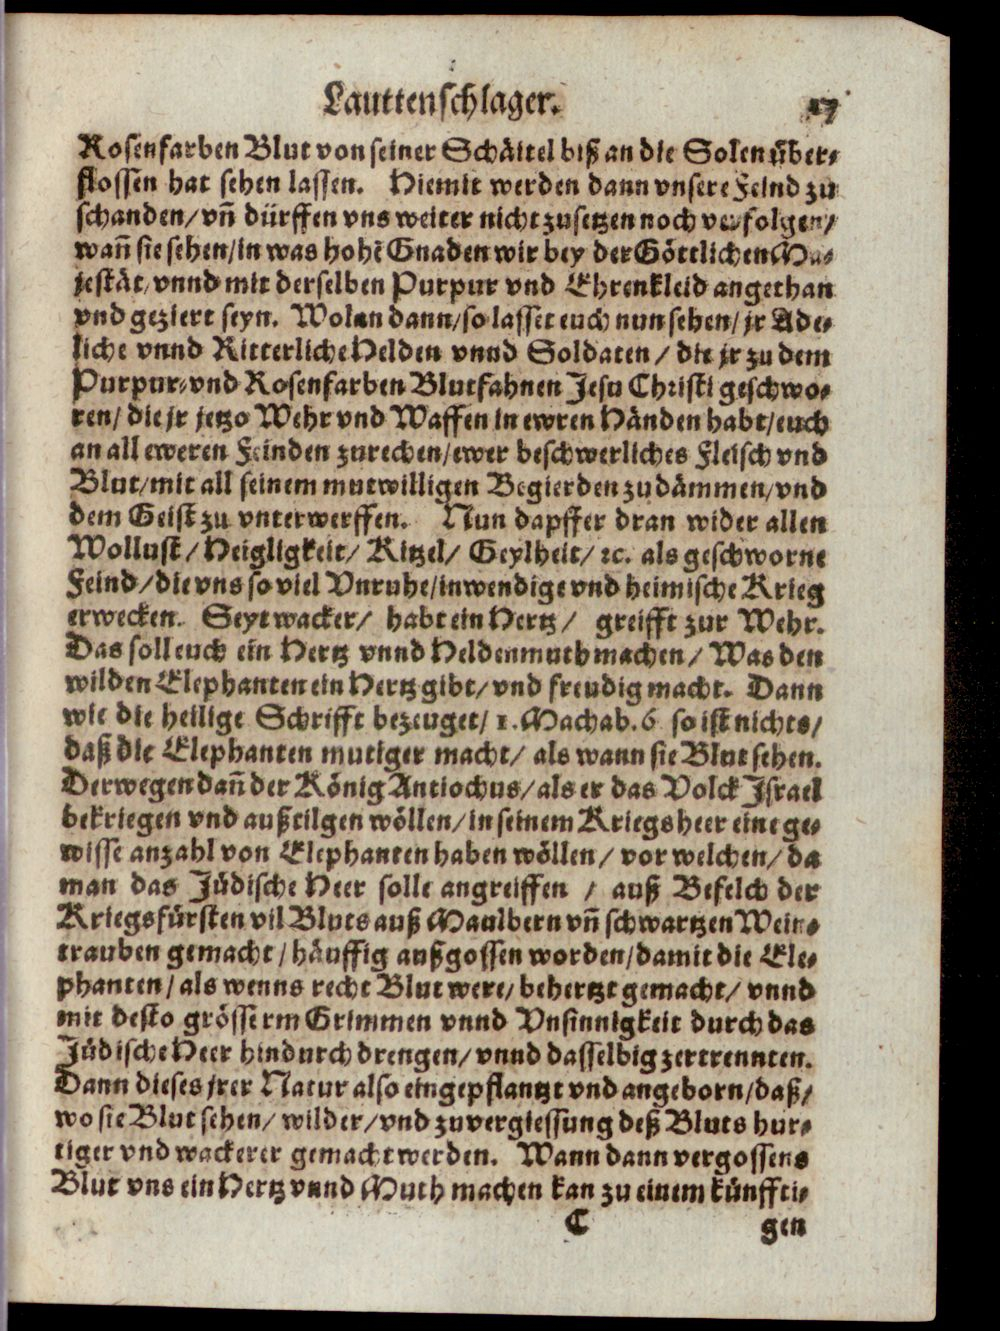 Lauttenschlager. 17
Rosenfarben Blut von seiner Schäitel biß an die Solen über⸗
flossen hat sehen lassen. Hiemit werden dann vnsere Feind zu
schanden/ vñ dürffen vns weiter nicht zusetzen noch verfolgen/
wañ sie sehen/ in was hohẽ Gnaden wir bey der Göttlichen Ma⸗
jestät/ vnnd mit derselben Purpur vnd Ehrenkleid angethan
vnd geziert seyn. Wolan dann/ so lasset euch nun sehen/ jr Ade⸗
liche vnnd Ritterliche Helden vnnd Soldaten/ die jr zu dem
Purpur⸗ vnd Rosenfarben Blutfahnen Jesu Christi geschwo⸗
ren/ die jr jetzo Wehr vnd Waffen in ewren Händen habt/ euch
an all eweren Feinden zurechen/ ewer beschwerliches Fleisch vnd
Blut/ mit all seinem mutwilligen Begierden zu dämmen/ vnd
dem Geist zu vnterwerffen. Nun dapffer dran wider allen
Wollust/ Heigligkeit/ Kitzel/ Geylheit/ ꝛc. als geschworne
Feind/ die vns so viel Vnruhe/ inwendige vnd heimische Krieg
erwecken. Seyt wacker/ habt ein Hertz/ greifft zur Wehr.
Das soll euch ein Hertz vnnd Heldenmuth machen/ Was den
wilden Elephanten ein Hertz gibt/ vnd freudig macht. Dann
wie die heilige Schrifft bezeuget/ 1. Machab. 6 so ist nichts/
daß die Elephanten mutiger macht/ als wann sie Blut sehen.
Derwegen dañ der König Antiochus/ als er das Volck Israel
bekriegen vnd außtilgen wöllen/ in seinem Kriegsheer eine ge⸗
wisse anzahl von Elephanten haben wöllen/ vor welchen/ da
man das Jüdische Heer solle angreiffen / auß Befelch der
Kriegsfürsten vil Bluts auß Maulbern vñ schwartzen Wein⸗
trauben gemacht/ häuffig außgossen worden/ damit die Ele⸗
phanten/ als wenns recht Blut were/ behertzt gemacht/ vnnd
mit desto grösserm Grimmen vnnd Vnsinnigkeit durch das
Jüdische Heer hindurch drengen/ vnnd dasselbig zertrennten.
Dann dieses jrer Natur also eingepflantzt vnd angeborn/ daß/
wo sie Blut sehen/ wilder/ vnd zuvergiessung deß Bluts hur⸗
tiger vnd wackerer gemacht werden. Wann dann vergossens
Blut vns ein Hertz vnnd Muth machen kan zu einem künffti⸗
C gen